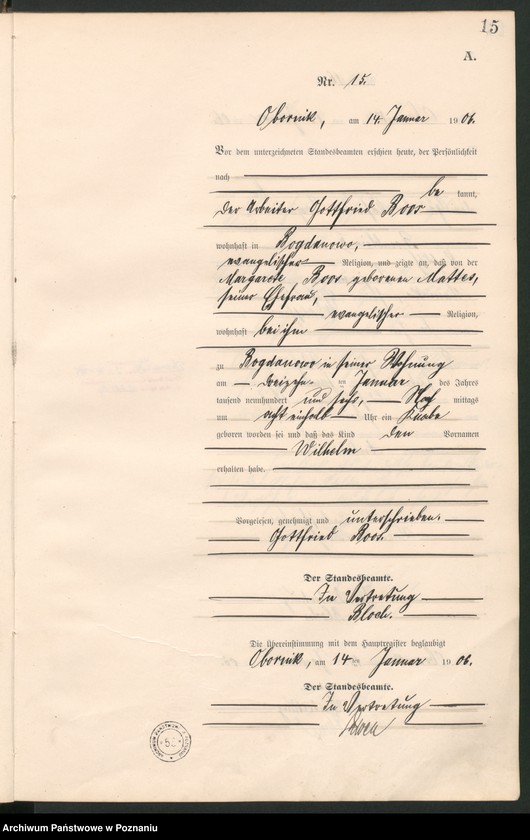 15
A.
Nr. 15.
Obornik, am 14. Januar 1906.
Vor dem unterzeichneten Standesbeamten erschien heute, der Persönlichkeit
nach
be kannt,
der Arbeiter Gottfried Roos
wohnhaft in Bogdanowo,
evangelischer Religion, und zeigte an, daß von der
Margarete Roos geborenen Mattes,
seiner Ehefrau,
evangelischer Religion,
wohnhaft bei ihm
zu Bogdanowo in seiner Wohnung
am dreizehn. ten Januar des Jahres
tausend neunhundert und sechs, Nach mittags
um acht einhalb Uhr ein Knabe
geboren worden sei und daß das Kind den Vornamen
Wilhelm
erhalten habe.
Vorgelesen, genehmigt und unterschrieben.
Gottfried Roos.
Der Standesbeamte.
In Vertretung
Bloch.
Die Übereinstimmung mit dem Hauptregister beglaubigt
Obornik, am 14 Januar 1906.
Der Standesbeamte.
In Vertretung
Bloch
Archiwum Państwowe w Poznaniu